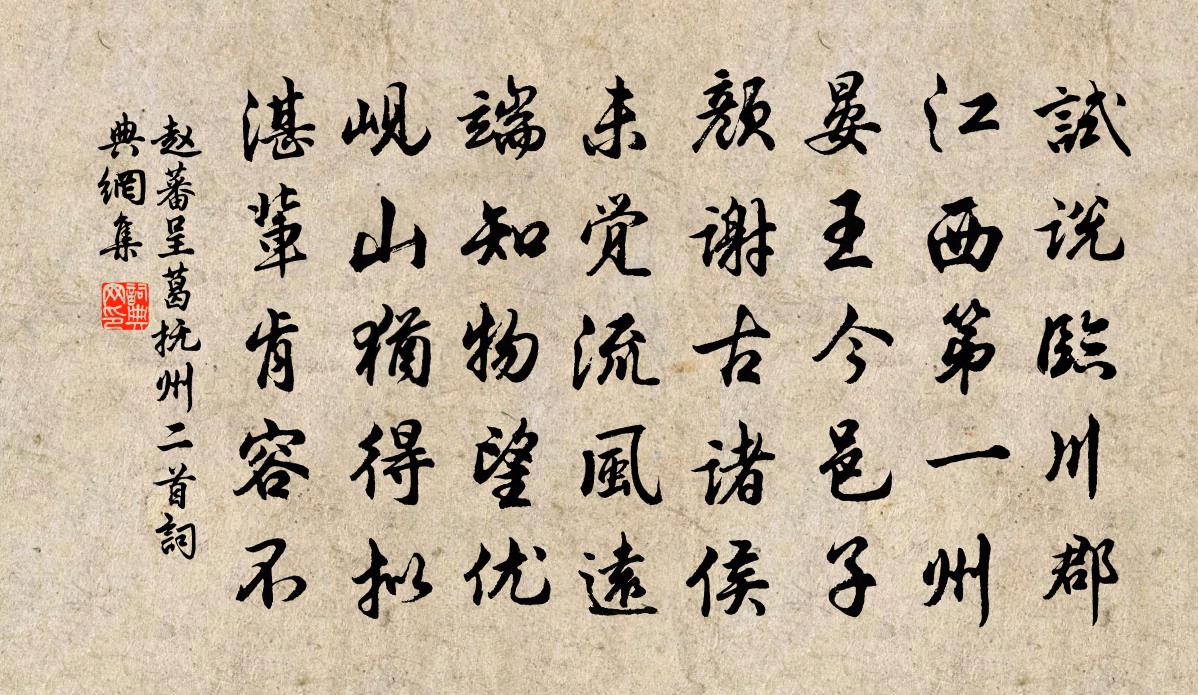 試说臨川郡
江西第一州
晏王今邑子
颜谢古诸侯
未觉流風遠
端知物望优
峴山猶得拟
湛輩肯容不
赵蕃呈葛抚州二首詞
典網集
詞典
网印